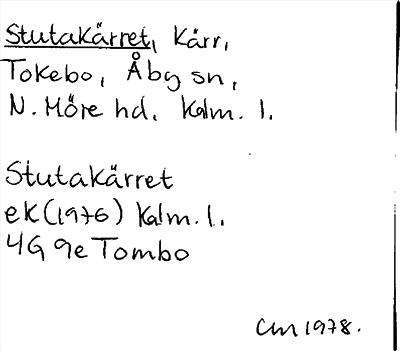 Stutakärret, Kärr,
Tokebo, Åby sn,
N. Möre hd. Kalm. l.
Stutakärret
ek (1976) Kalm. l.
4G 9e Tombo
CM 1978.